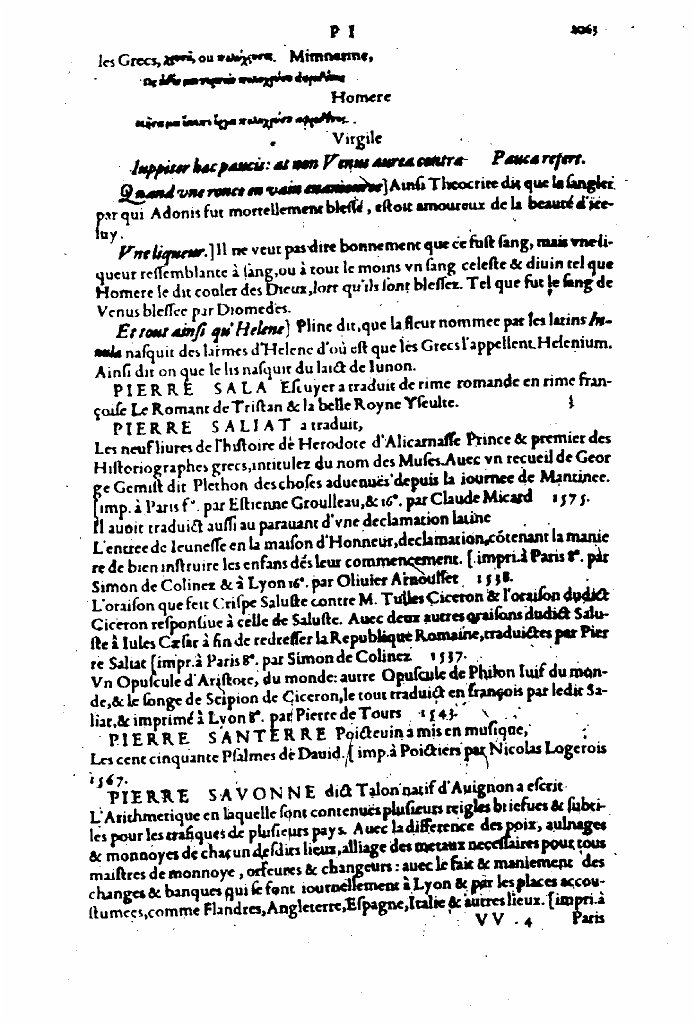 P I 1063
les Grecs, ou Mimnerme,
Homere
Virgile
Iuppiter hac paucis: at non Venus aurea contra Pauca refert.
Quand vne ronce en vain] Ainsi Theocrite dit que la sanglier
par qui Adonis fut mortellement blessé, estoit amoureux de la beauté d'ice-
luy.
Vne liqueur.] Il ne veut pas dire bonnement que ce fust sang, mais vne li-
queur ressemblante à sang, ou à tout le moins vn sang celeste & diuin tel que
Homere le dit couler des Dieux, lors qu'ils sont blessez. Tel que fut le sang de
Venus blessee par Diomedes.
Et tout ainsi qu'Helene] Pline dit, que la fleur nommee par les latins In-
nula nasquit des larmes d'Helene d'où est que les Grecs l'appellent Helenium.
Ainsi dit on que le lis nasquit du laict de Iunon.
PIERRE SALA Escuyer a traduit de rime romande en rime fran-
çoise Le Romant de Tristan & la belle Royne Yseulte.
PIERRE SALIAT a traduit,
Les neuf liures de l'histoire de Herodote d'Alicarnasse Prince & premier des
Historiographes grecs, intitulez du nom des Muses. Auec vn recueil de Geor
ge Gemist dit Plethon des choses aduenues depuis la iournee de Mantinee.
[imp. à Paris f°. par Estienne Groulleau, & 16°. par Claude Micard 1575.
Il auoit traduict aussi au parauant d'vne declamation latine
L'entree de Ieunesse en la maison d'Honneur, declamation, cōtenant la manie
re de bien instruire les enfans dés leur commencement. [impri. à Paris 8°. par
Simon de Colinez & à Lyon 16°. par Oliuier Arnoullet 1538.
L'oraison que feit Crispe Saluste contre M. Tulles Ciceron & l'oraison dudict
Ciceron responsiue à celle de Saluste. Auec deux autres oraisons dudict Salu-
ste à Iules Cæsar à fin de redresser la Republique Romaine, traduictes par Pier
re Saliat [impr. à Paris 8°. par Simon de Colinez 1537.
Vn Opuscule d'Aristote, du monde: autre Opuscule de Philon Iuif du mon-
de, & le songe de Scipion de Ciceron, le tout traduict en françois par ledit Sa-
liat, & imprimé à Lyon 8°. par Pierre de Tours 1543.
PIERRE SANTERRE Poicteuin a mis en musique,
Les cent cinquante Psalmes de Dauid. [imp. à Poictiers par Nicolas Logerois
1567.
PIERRE SAVONNE dict Talon natif d'Auignon a escrit
L'Arithmetique en laquelle sont contenues plusieurs reigles briefues & subti-
les pour les trafiques de plusieurs pays. Auec la difference des poix, aulnages
& monnoyes de chacun desdits lieux, alliage des metaux necessaires pour tous
maistres de monnoye, orfeures & changeurs: auec le fait & maniement des
changes & banques qui se font iournellement à Lyon & par les places accou-
stumees, comme Flandres, Angleterre, Espagne, Italie & autres lieux. [impri. à
VV . 4 Paris